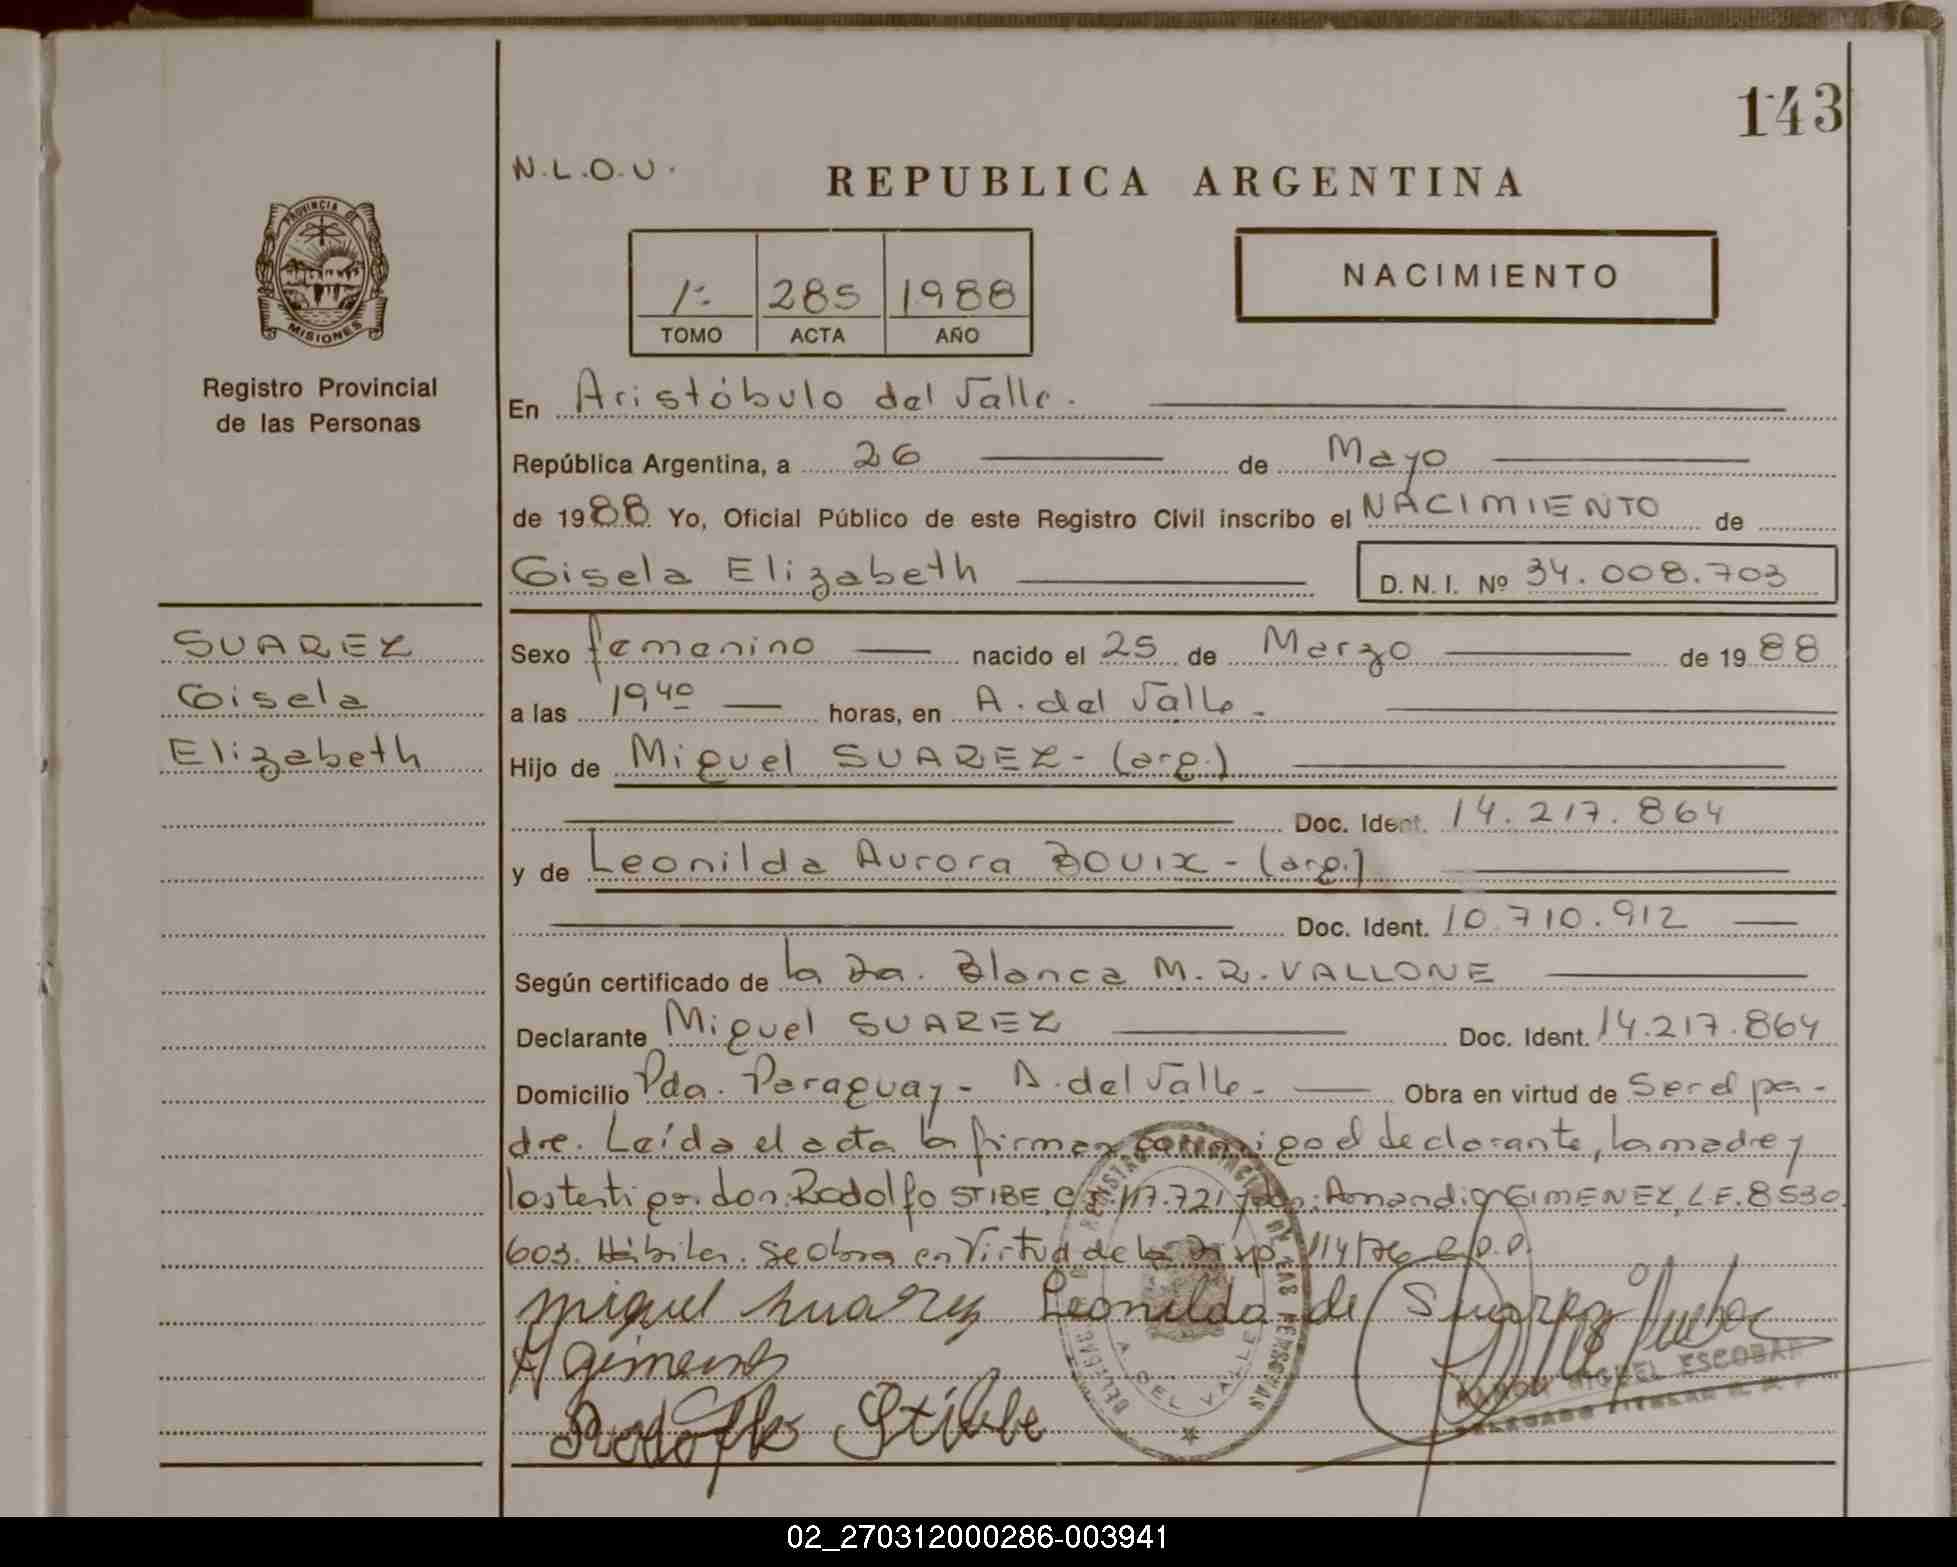 143
N.L.O.U.
REPUBLICA ARGENTINA
PROVINCIA DE
MISIONES
Registro Provincial
de las Personas
1º 285 1988
TOMO ACTA AÑO
NACIMIENTO
En Aristóbulo del Valle.
República Argentina, a 26 de Mayo
de 1988 Yo, Oficial Público de este Registro Civil inscribo el NACIMIENTO de
Gisela Elizabeth D. N. I. Nº 34.008.703
SUAREZ
Gisela
Elizabeth
Sexo femenino nacido el 25 de Marzo de 1988
a las 19 40 horas, en A. del Valle -
Hijo de Miguel SUAREZ - (arg.)
Doc. Ident. 14.217.864
y de Leonilda Aurora BOUIX - (arg.)
Doc. Ident. 10.710.912
Según certificado de la Dra. Blanca M. R. VALLONE
Declarante Miguel SUAREZ Doc. Ident. 14.217.864
Domicilio Pda. Paraguay - A. del Valle - Obra en virtud de Ser el pa-
dre. Leída el acta la firman conmigo el declarante, la madre y
los testigos. don: Rodolfo STIBE, 117.721 y don: Amandio GIMENEZ, L.E. 8530
603. Hábiles. Se obra en Virtud de la Disp. 114/76
miguel suarez Leonilda de Suarez
A gimenes
Rodolfo Stibbe
REGISTRO PROVINCIAL DE LAS PERSONAS
A. DEL VALLE
RAMON MIGUEL ESCOBAR
DELEGADO TITULAR
02_270312000286-003941